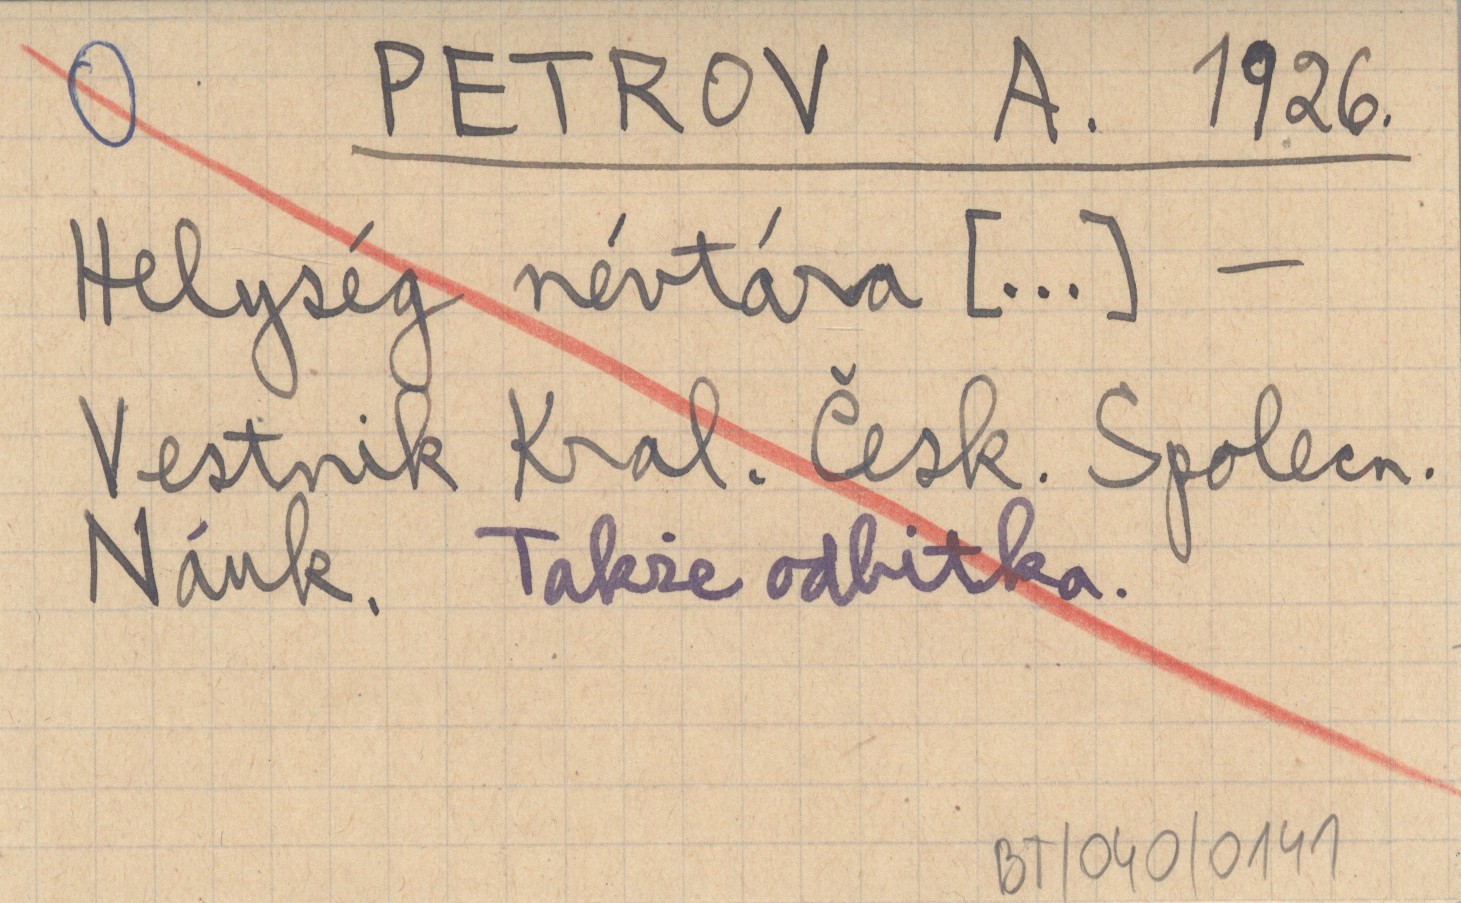 O PETROV A. 1926.
Helység névtára [...] —
Vestnik Kral. Česk. Spolecn.
Náuk. Także odbitka.
BT/040/0141